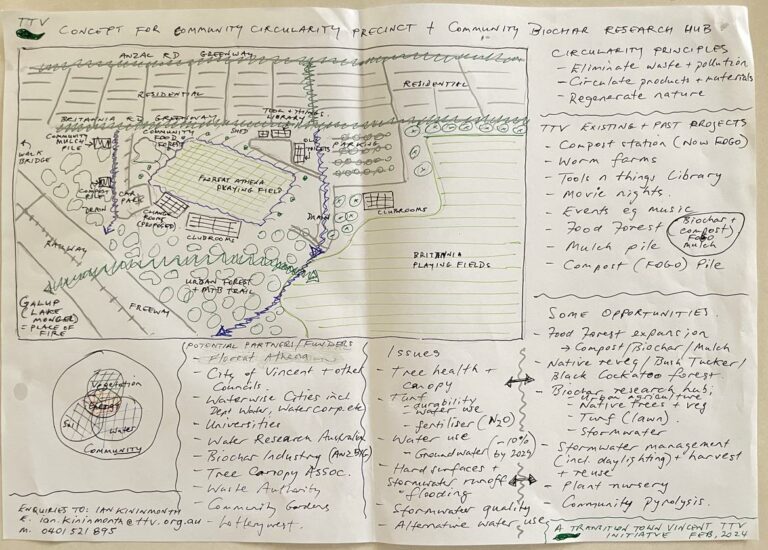 TTV
CONCEPT FOR COMMUNITY CIRCULARITY PRECINCT + COMMUNITY BIOCHAR RESEARCH HUB
ANZAC RD GREENWAY
RESIDENTIAL
RESIDENTIAL
BRITANNIA RD GREENWAY
TOOL + THINGS
LIBRARY
COMMUNITY
MULCH
PILE
COMMUNITY
FOOD
FOREST
SHED
TOILETS
PARKING
WALK
BRIDGE
COMPOST
PILE
DRAIN
CAR
PARK
FLOREAT ATHENA
PLAYING FIELD
CHANGE
ROOMS
(PROPOSED)
CLUBROOMS
DRAIN
CLUBROOMS
RAILWAY
BRITANNIA
PLAYING FIELDS
URBAN FOREST
+ MTB TRAIL
FREEWAY
GALUP
(LAKE
MONGER)
= PLACE OF
FIRE
CIRCULARITY PRINCIPLES
- Eliminate waste + pollution
- Circulate products + materials
- Regenerate nature
TTV EXISTING + PAST PROJECTS
- Compost station (NOW FOGO)
- Worm farms
- Tools n things Library
- Movie nights.
- Events eg music
- Food Forest
- Mulch pile
- Compost (FOGO) Pile
Biochar +
compost)
FOGO
mulch
SOME OPPORTUNITIES.
- Food Forest expansion
→ Compost/Biochar/Mulch
- Native reveg/Bush Tucker/
Black Cockatoo forest.
- Biochar research hub;
- Urban agriculture
- Native trees + veg
- Turf (lawn).
- Stormwater
- Stormwater management
(incl. daylighting) + harvest
+ reuse
- Plant nursery
- Community Pyrolysis.
Vegetation
Energy
Soil
Water
COMMUNITY
ENQUIRIES TO: IAN KININMONTH
E. ian.kininmonth@ttv.org.au
M. 0401 521 895
POTENTIAL PARTNERS/FUNDERS
- Floreat Athena
- City of Vincent + other
Councils.
- Waterwise Cities incl
Dept Water, Watercorp etc
- Universities
- Water Research Australia
- Biochar Industry (ANZBIG)
- Tree Canopy Assoc.
- Waste Authority
- Community Gardens
- Lotterywest.
ISSUES
- Tree health +
canopy
- Turf
- durability
- water use
- fertiliser (N2O)
- Water use
- Groundwater (-10%
by 2029)
- Hard surfaces +
Stormwater runoff
- flooding
- Stormwater quality
- Alternative water use
A TRANSITION TOWN VINCENT TTV
INITIATIVE FEB, 2024